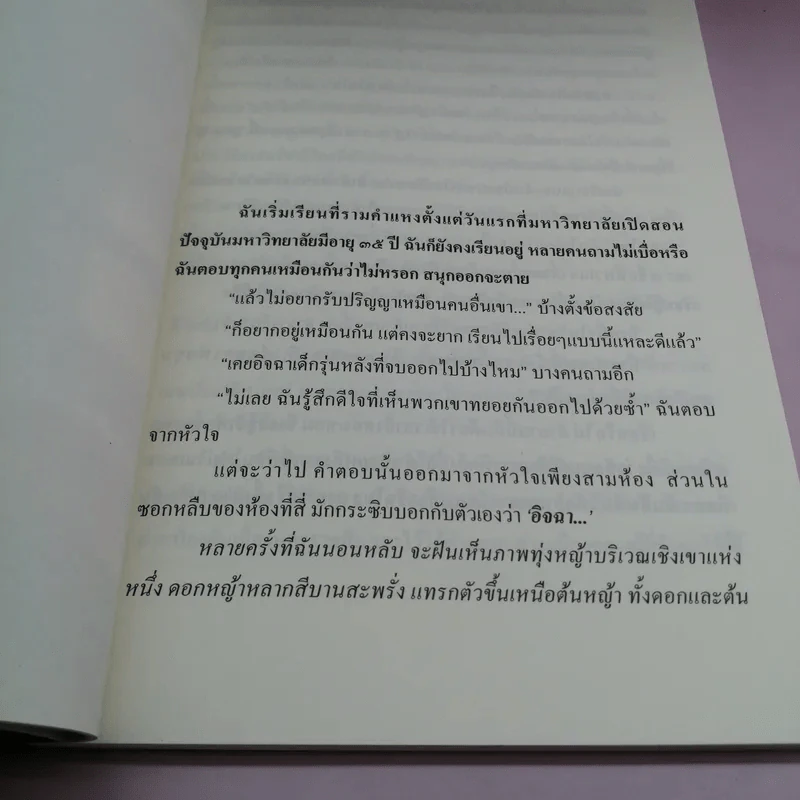 ฉันเริ่มเรียนที่รามคำแหงตั้งแต่วันแรกที่มหาวิทยาลัยเปิดสอน
ปัจจุบันมหาวิทยาลัยมีอายุ ๓๕ ปี ฉันก็ยังคงเรียนอยู่ หลายคนถามไม่เบื่อหรือ
ฉันตอบทุกคนเหมือนกันว่าไม่หรอก สนุกออกจะตาย
“แล้วไม่อยากรับปริญญาเหมือนคนอื่นเขา...” บ้างตั้งข้อสงสัย
“ก็อยากอยู่เหมือนกัน แต่คงจะยาก เรียนไปเรื่อยๆแบบนี้แหละดีแล้ว”
“เคยอิจฉาเด็กรุ่นหลังที่จบออกไปบ้างไหม” บางคนถามอีก
“ไม่เลย ฉันรู้สึกดีใจที่เห็นพวกเขาทยอยกันออกไปด้วยซ้ำ” ฉันตอบ
จากหัวใจ
แต่จะว่าไป คำตอบนั้นออกมาจากหัวใจเพียงสามห้อง ส่วนใน
ซอกหลืบของห้องที่สี่ มักกระซิบบอกกับตัวเองว่า ‘อิจฉา...’
หลายครั้งที่ฉันนอนหลับ จะฝันเห็นภาพทุ่งหญ้าบริเวณเชิงเขาแห่ง
หนึ่ง ดอกหญ้าหลากสีบานสะพรั่ง แทรกตัวขึ้นเหนือต้นหญ้า ทั้งดอกและต้น